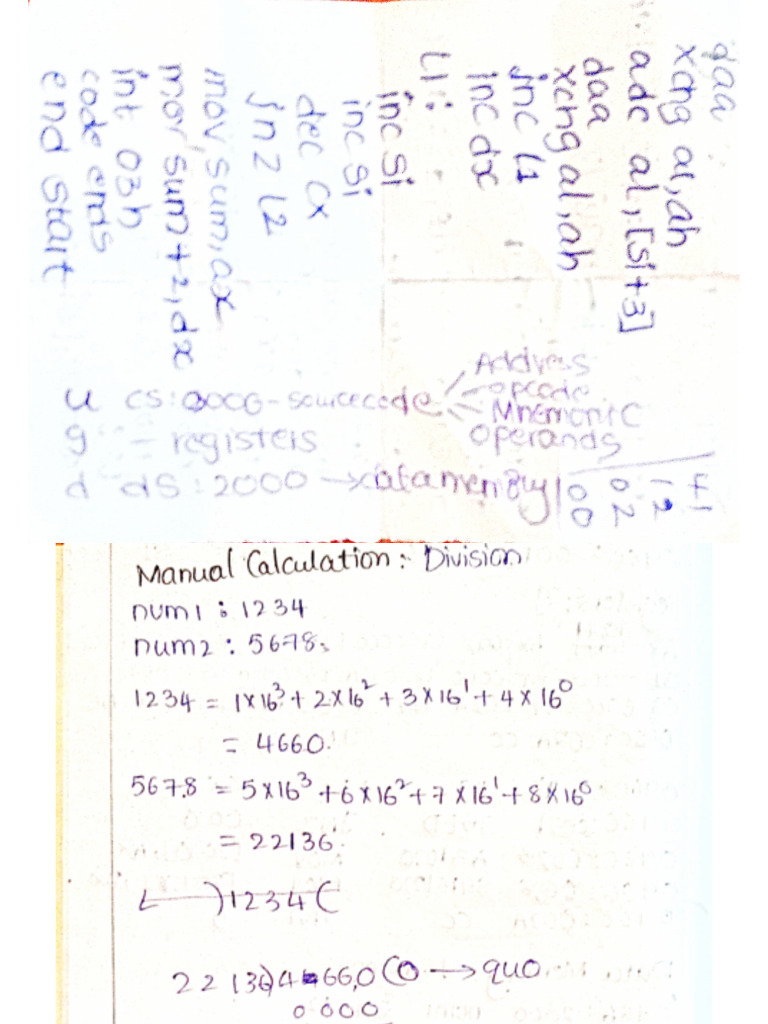 daa
xchg al,ah
adc al,[si+3]
daa
xchg al,ah
jnc L1
inc dx
L1:
inc si
inc si
dec cx
jnz L2
mov sum,ax
mov sum+2,dx
int 03h
code ends
end start
u cs:0006-sourcecode
Address
opcode
Mnemonic
operands
g - registers
d ds:2000 → datamemory
Manual Calculation: Division
num1 : 1234
num2 : 5678.
1234 = 1×16³ + 2×16² + 3×16¹ + 4×16⁰
= 4660.
5678 = 5×16³ + 6×16² + 7×16¹ + 8×16⁰
= 22136
)1234(
22136)4660(0 → quo
0000